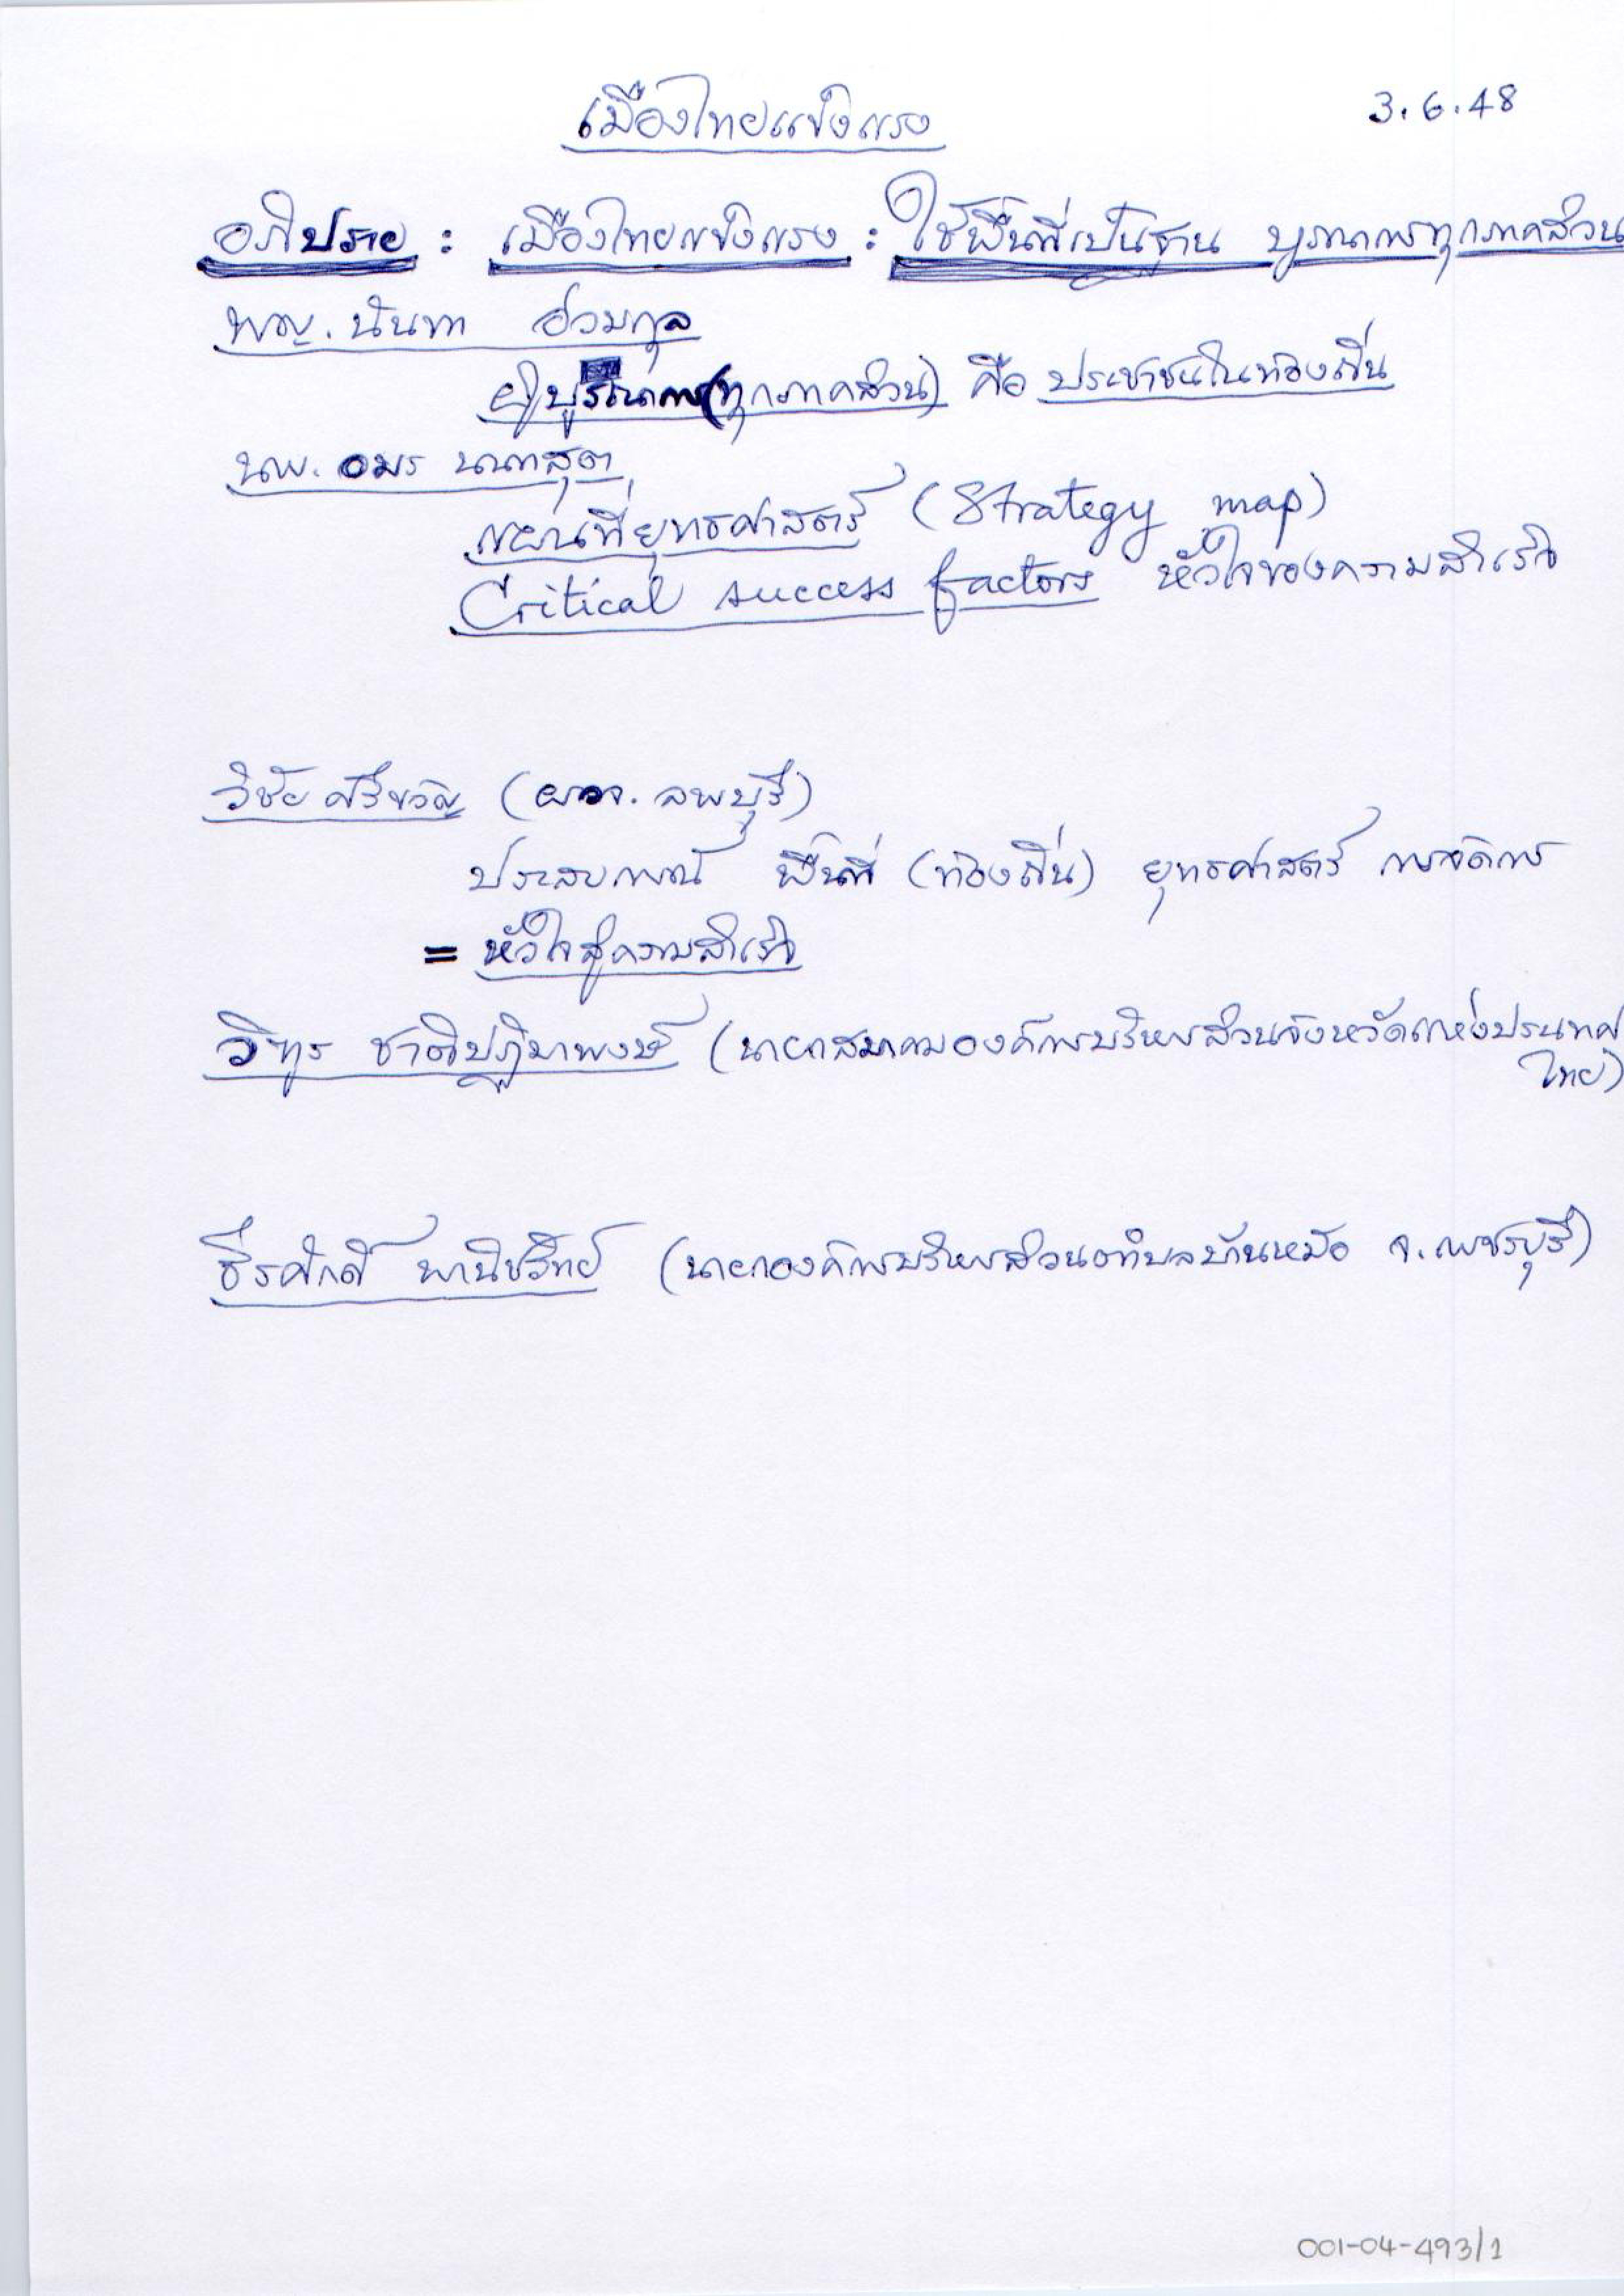 เมืองไทยแข็งแรง
3.6.48
อภิปราย : เมืองไทยแข็งแรง : ใช้พื้นที่เป็นฐาน บูรณาการทุกภาคส่วน
พญ. นันทา อ่วมกุล
ผู้บูรณาการ(ทุกภาคส่วน) คือ ประชาชนในท้องถิ่น
นพ. อมร นนทสุต
แผนที่ยุทธศาสตร์ (Strategy map)
Critical success factors หัวใจของความสำเร็จ
วิชัย ศรีขวัญ (ผวจ. ลพบุรี)
ประสบการณ์ พื้นที่ (ท้องถิ่น) ยุทธศาสตร์ การจัดการ
= หัวใจสู่ความสำเร็จ
วิฑูร ชาติปฏิมาพงษ์ (นายกสมาคมองค์การบริหารส่วนจังหวัดแห่งประเทศ
ไทย)
ธีรศักดิ์ พานิชวิทย์ (นายกองค์การบริหารส่วนตำบลบ้านหม้อ จ.เพชรบุรี)
001-04-493/1